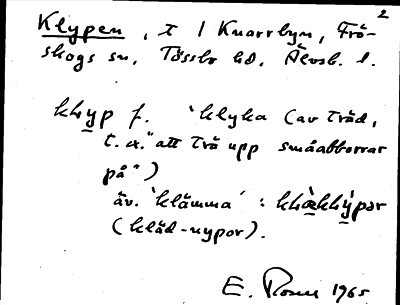 2
Klypen, t i Knarrbyn, Frö-
skogs sn, Tössbo hd, Älvsb. l.
khyp f. 'klyka (av träd,
t. ex. "att trä upp småabborrar
på")
äv. 'klämma' : khækhypər
(kläd-nypor).
E. 1965